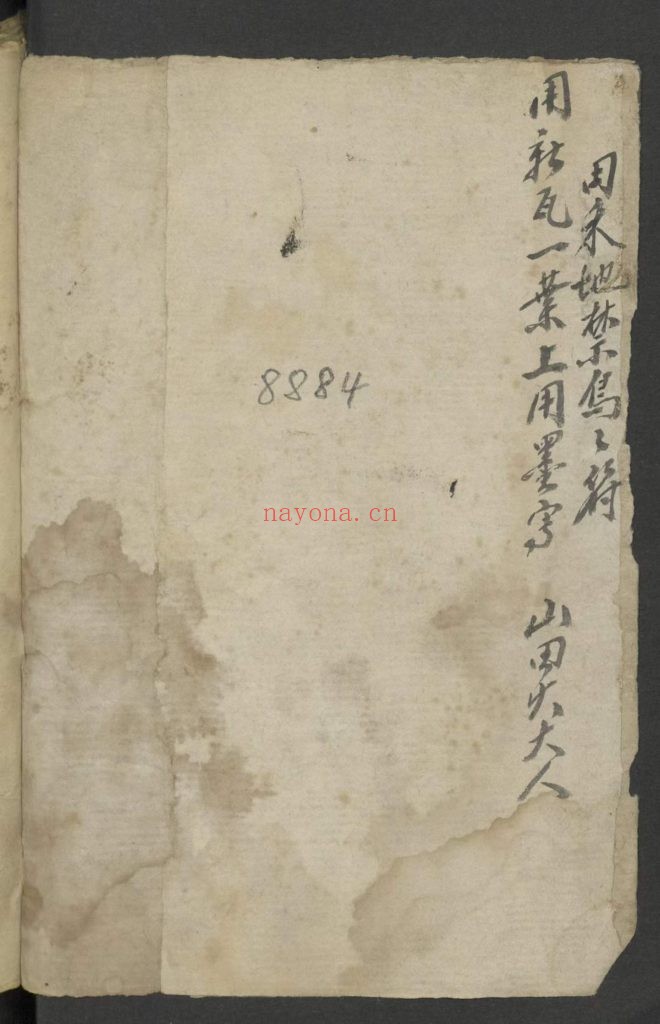 用来地禁鳥〻符
用新瓦一葉上用墨寫 山田大人
8884
nayona.cn